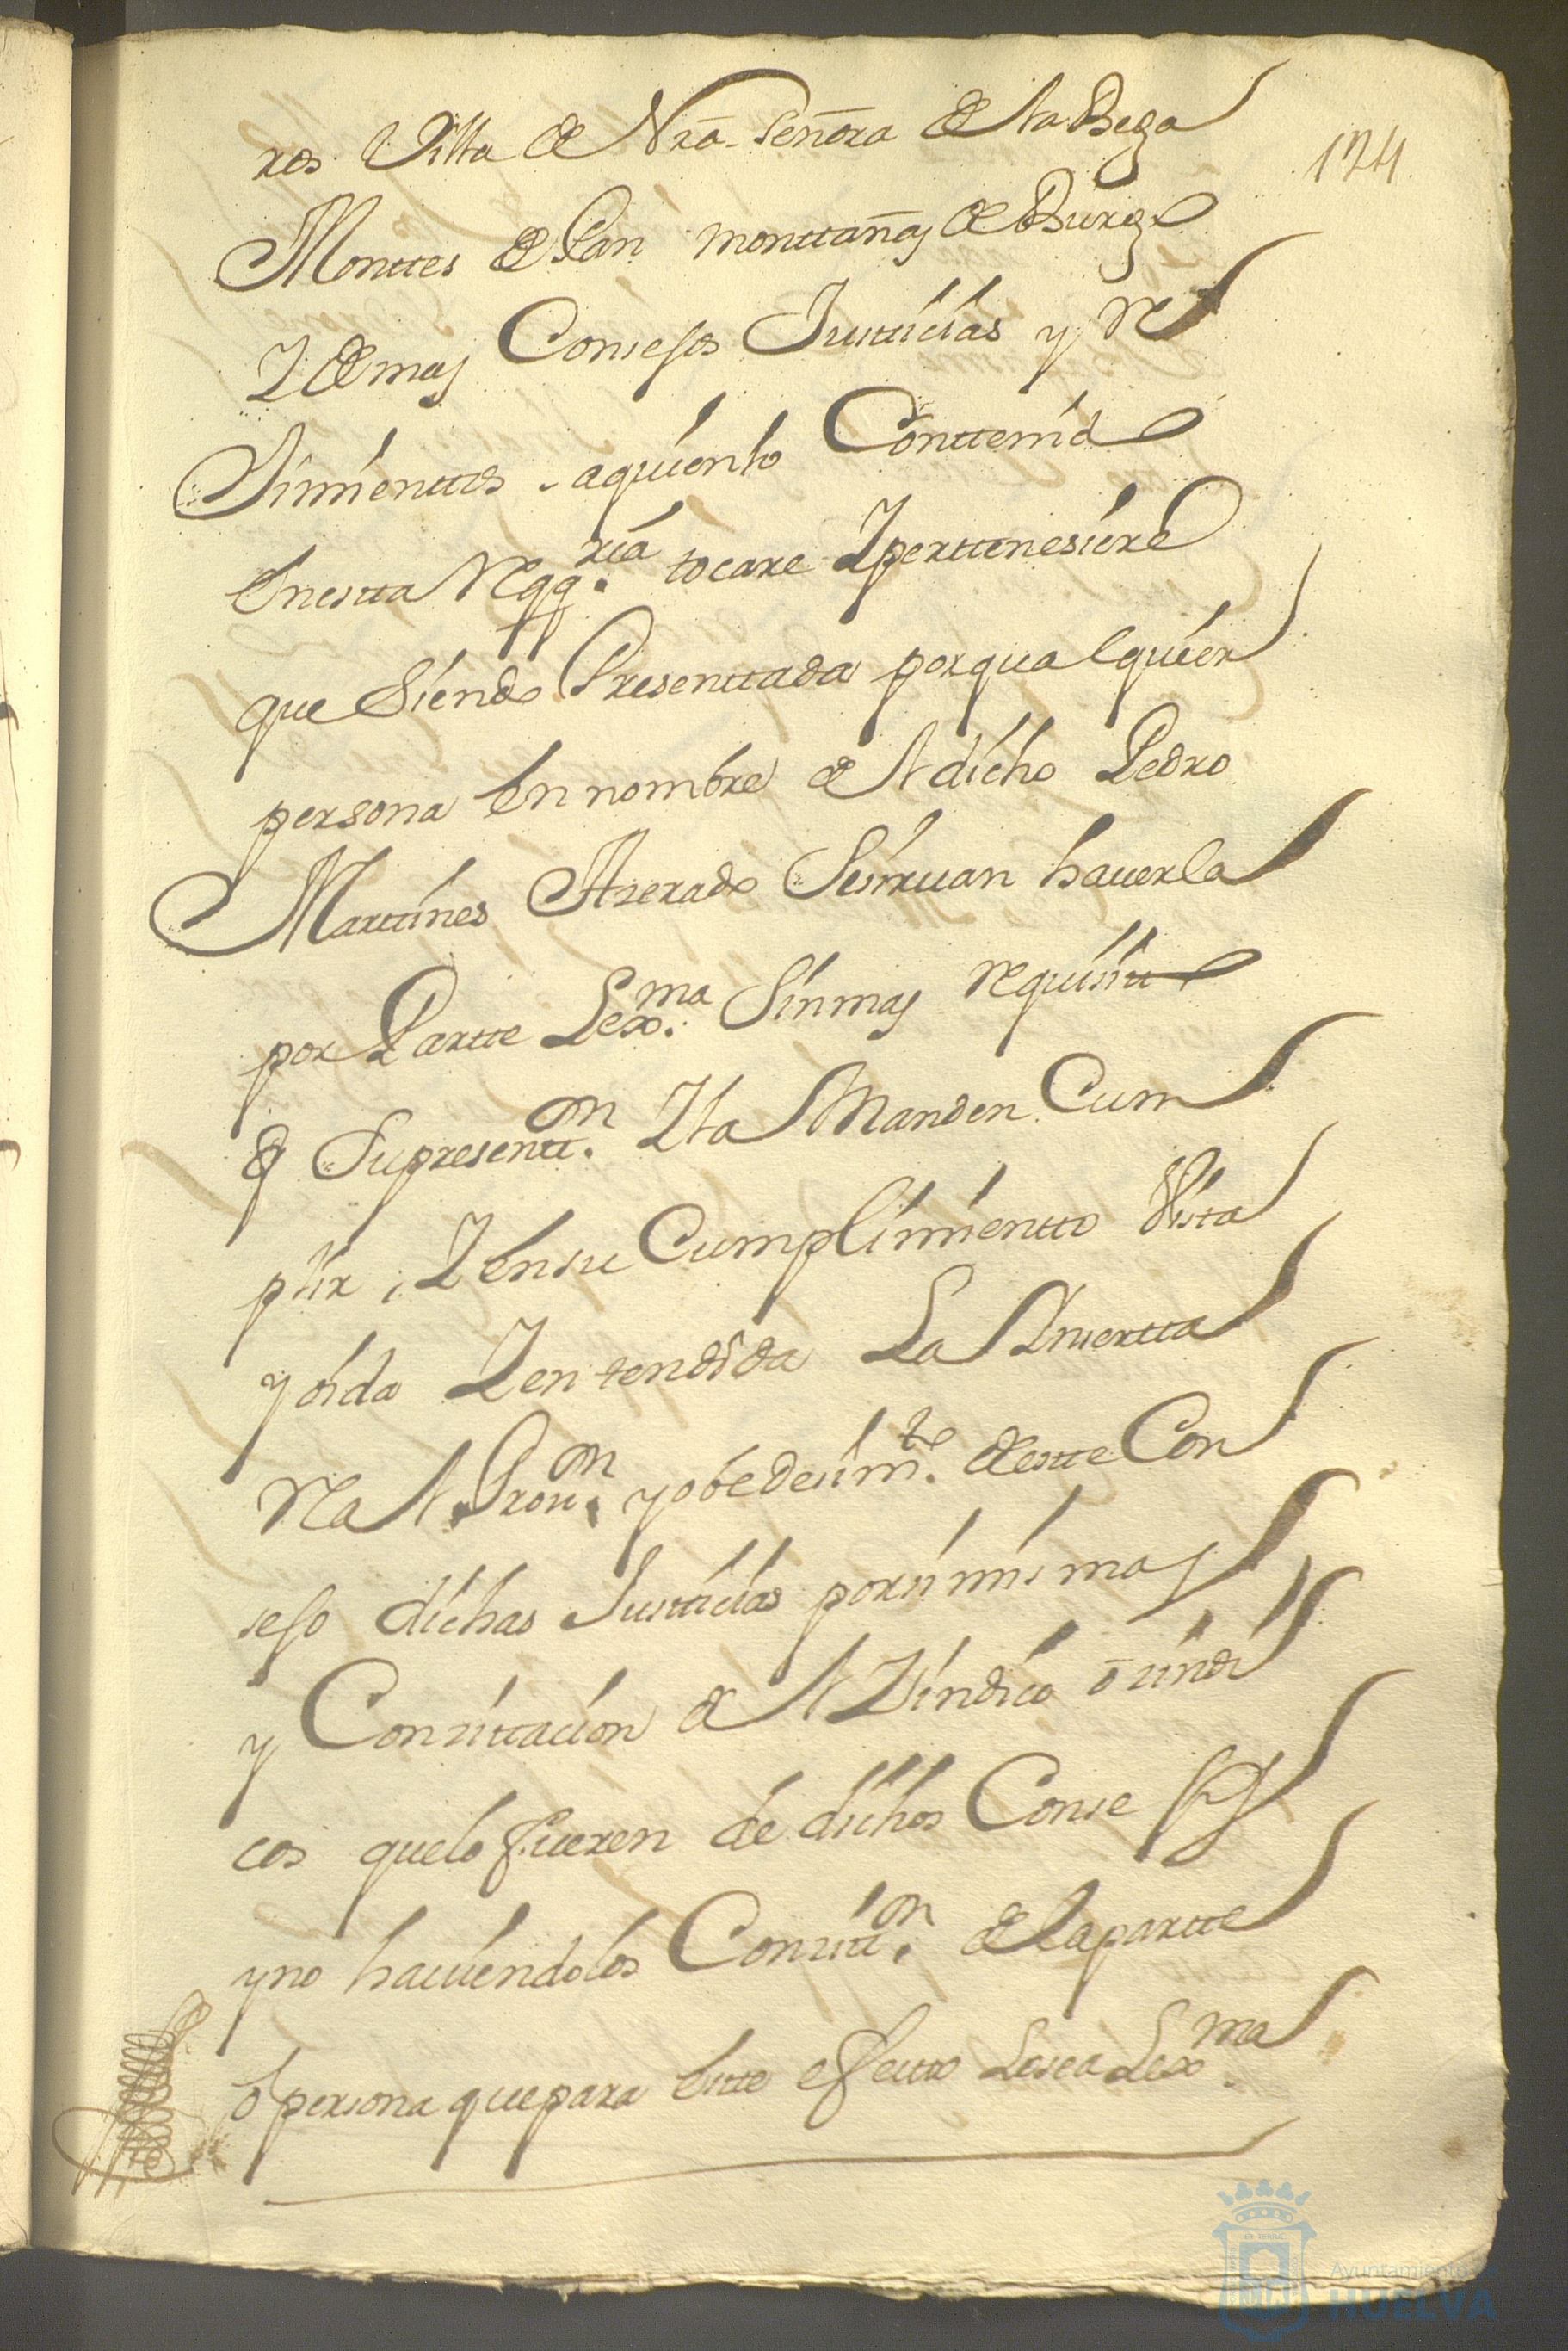 124
ros Villa de Nrâ Señora de la Bega
Monttes de Pan monttañas de Burgs
Y demas Consejos Justticias y Re
Jimienttos aquien lo Conttenido
en estta Requiria tocare Y perttenesiere
que Siendo Presenttada por qualquier
persona en nombre del dicho Pedro
Marttines Azerado Se sirvan haverla
por Partte Lexma Sin mas requisitto
q Su presenttn Y la Manden Cum
plir, Y en su Cumplimientto Vista
y oida Y entendida La Ynsertta
Real Provn y obedesimto de estte Con
sejo dichas Justticias por si mismas
y Consittacion del Sindico o sindi
cos que lo fueren de dichos Consejos
y no haviendolos Consittn de la partte
o persona que para estte efectto Le sea Lexma
Ayuntamiento de
HUELVA